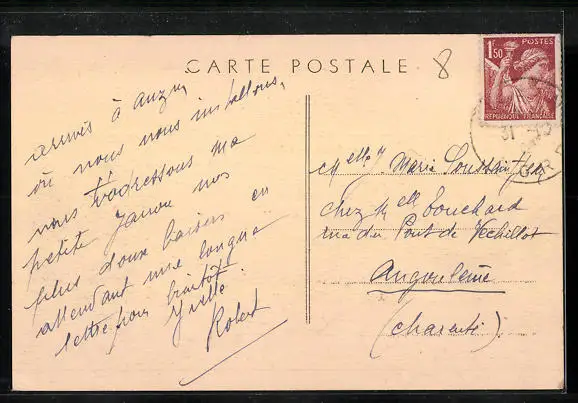 CARTE POSTALE
8
1F50
POSTES
RÉPUBLIQUE FRANÇAISE
31
arrivés à
où nous nous installons,
nous t'adressons ma
petite nos
plus doux baisers en
attendant une longue
lettre pour bientôt
Robert
Marie
chez Mell Bouchard
rue du Pont de
Angoulême
(Charente)